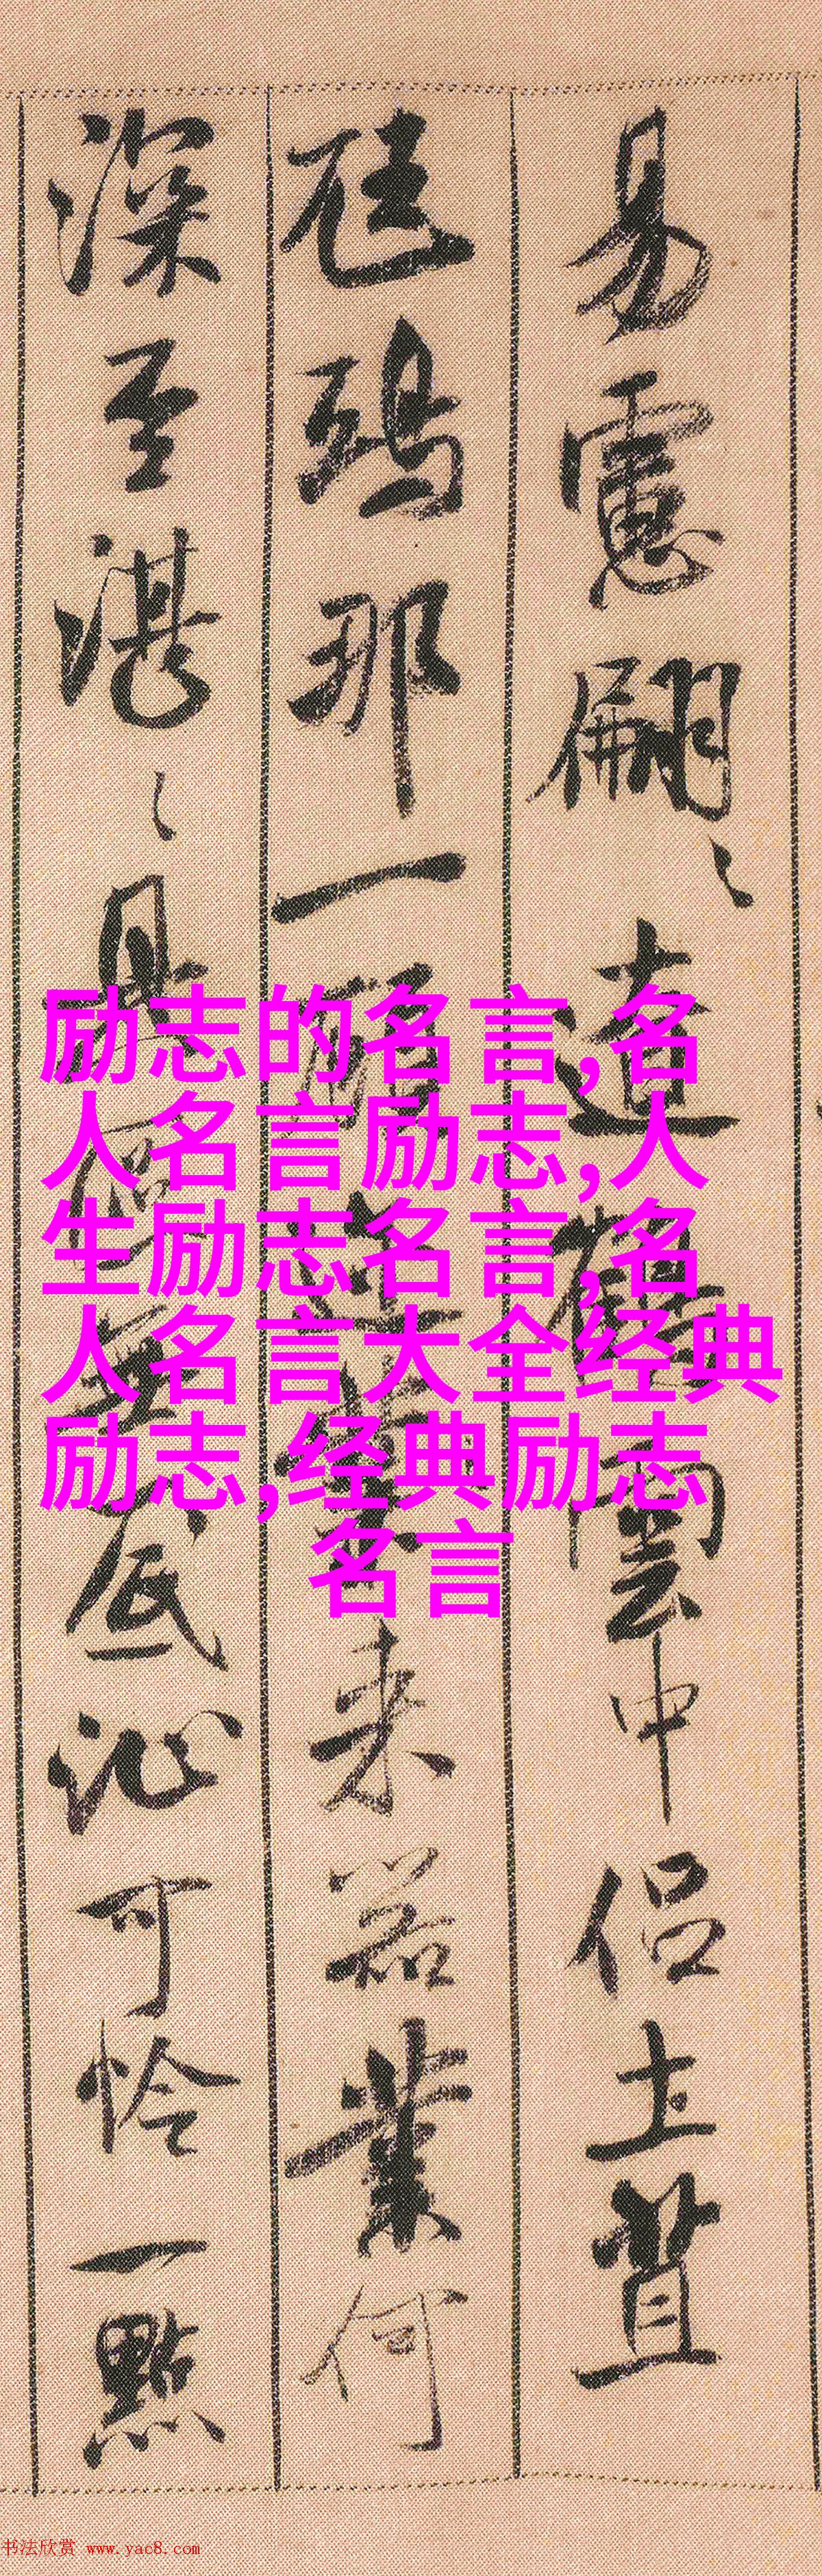 易慮翩〻遼鶴雲中侶土苴
尪鴟那一顧邇來器業何
深至湛〻具區無底沚可憐一點
励志的名言,名
人名言励志,人
生励志名言,名
人名言大全经典
励志,经典励志
名言
书法欣赏 www.yac8.com